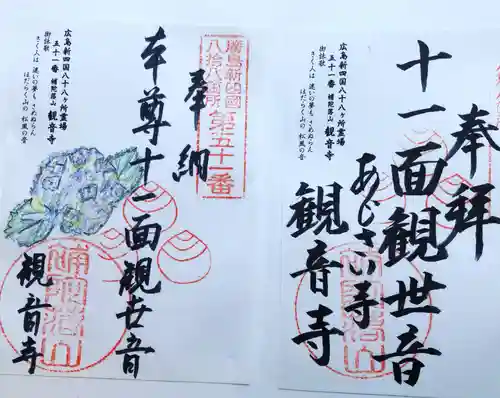 奉拝
十一面観世音
あじさい寺
観音寺
広島新四国八十八ヶ所霊場
五十一番 補陀落山 観音寺
御詠歌
さく人は 迷いの夢も さめぬらん
はだらく山の 松風の音
廣島新四國
八拾八箇所
第五十一番
奉納
本尊十一面観世音
補陀洛山
観音寺
広島新四国八十八ヶ所霊場
五十一番 補陀落山 観音寺
御詠歌
さく人は 迷いの夢も さめぬらん
はだらく山の 松風の音